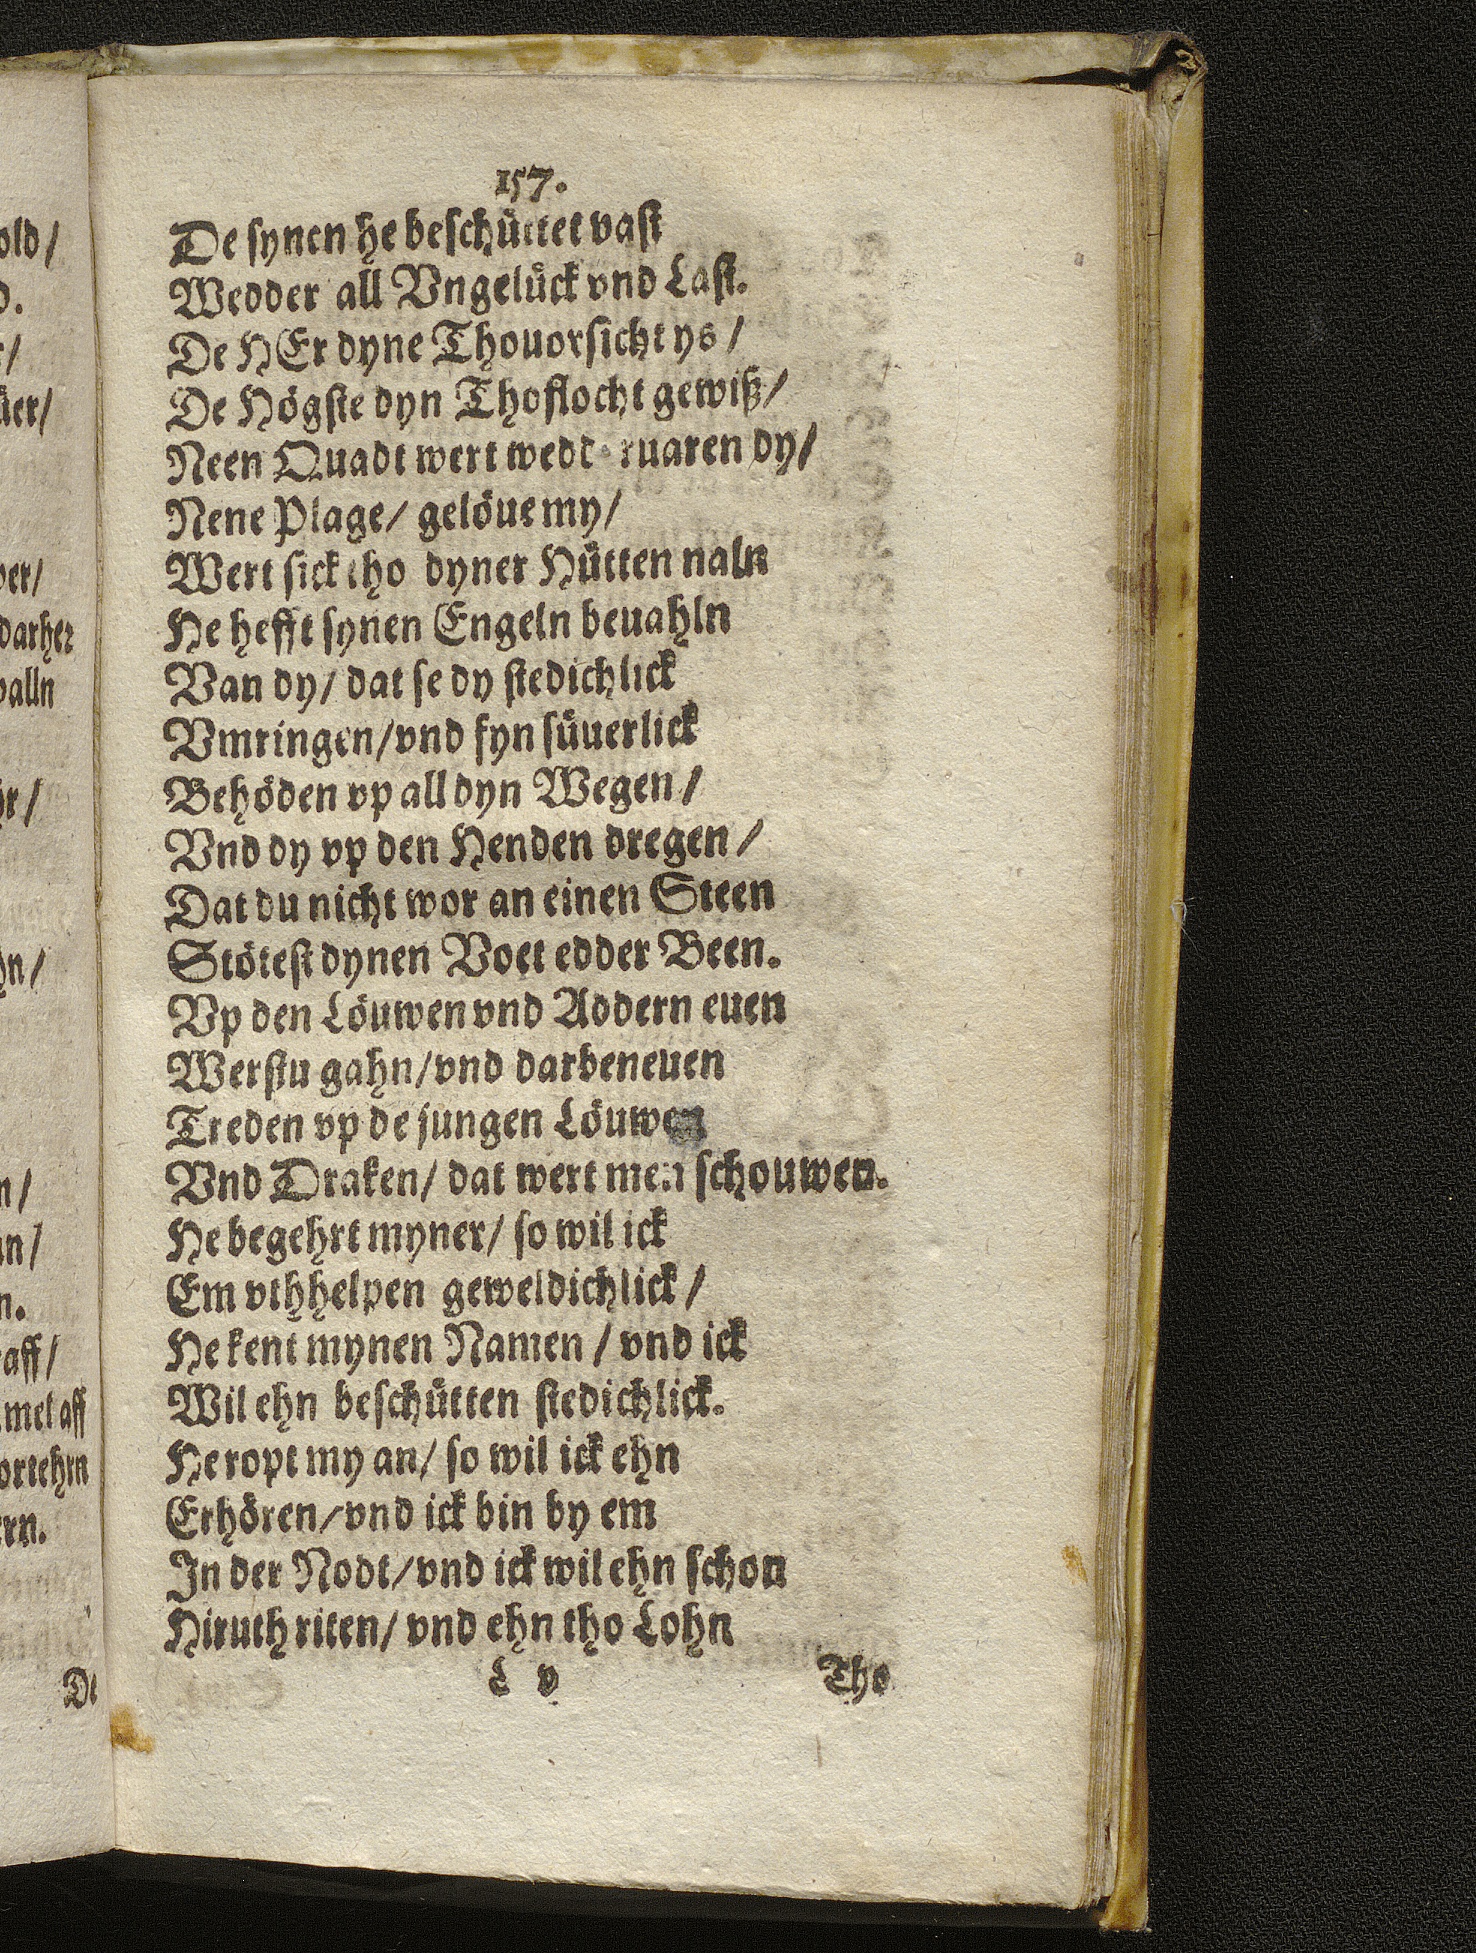 157.
De synen he beschüttet vast
Wedder all Vngelück vnd Last.
De HEr dyne Thouorsicht ys /
De Högste dyn Thoflocht gewiß /
Neen Quadt wert wedderuaren dy /
Nene Plage / gelöue my /
Wert sick tho dyner Hütten naln
He hefft synen Engeln beuahln
Van dy / dat se dy stedichlick
Vmringen / vnd fyn süuerlick
Behöden vp all dyn Wegen /
Vnd dy vp den Henden dregen /
Dat du nicht wor an einen Steen
Stötest dynen Voet edder Been.
Vp den Löuwen vnd Addern euen
Werstu gahn / vnd darbeneuen
Treden vp de jungen Löuwen
Vnd Draken / dat wert men schouwen.
He begehrt myner / so wil ick
Em vthhelpen geweldichlick /
He kent mynen Namen / vnd ick
Wil ehn beschütten stedichlick.
He ropt my an / so wil ick ehn
Erhören / vnd ick bin by em
In der Nodt / vnd ick wil ehn schon
Hiruth riten / vnd ehn tho Lohn
L v Tho